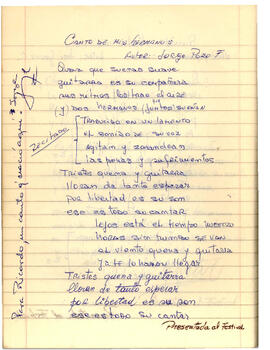 CANTO DE MIS HERMANOS
Autor: JORGE POZO F.
Quena que suenas suave
guitarra es su compañera
sus notas
(y) DOS HERMANOS (JUNTOS SUEÑAN
Recitado
TRADUCIDO EN UN LAMENTO
EL SONIDO DE SU VOZ
AGITAN Y
las penas y sufrimientos
TRISTES QUENA Y GUITARRA
LLORAN DE TANTO ESPERAR
POR LIBERTAD ES SU SON
ESO ES TODO SU CANTAR
LEJOS ESTÁ EL TIEMPO
HORAS SIN RUMBO SE VAN
AL VIENTO QUENA Y GUITARRA
YA TE LO HARÁN LLEGAR
TRISTES QUENA Y GUITARRA
LLORAN DE TANTO ESPERAR
POR LIBERTAD ES SU SON
ESO ES TODO SU CANTAR
Presentada al Festival
Para Ricardo, un canto y
Jorge